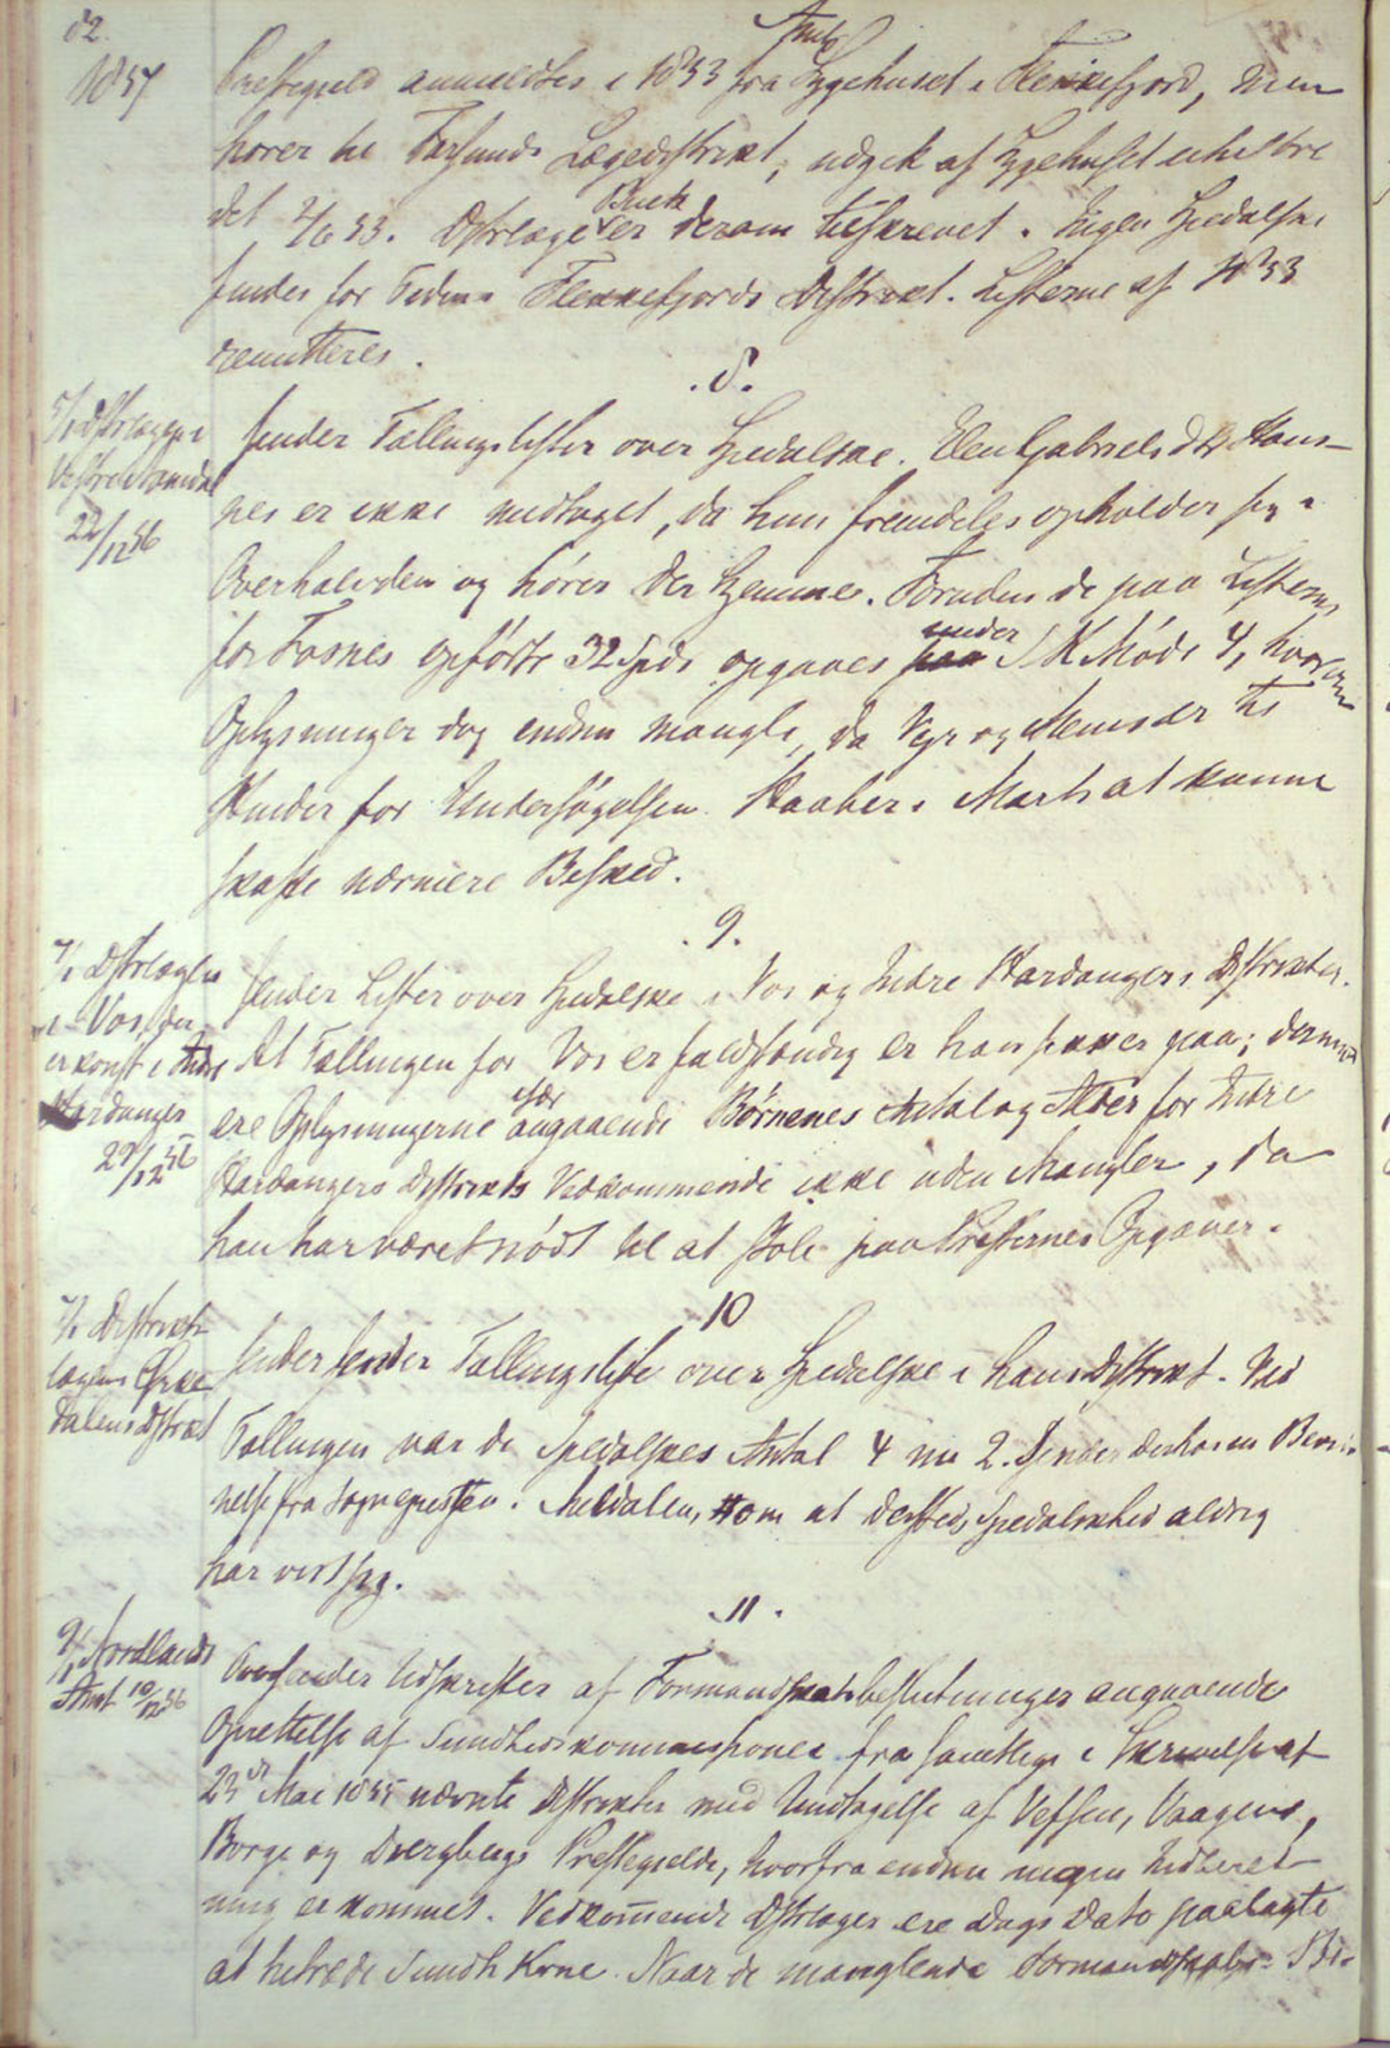 82.
1857
Præstegjeld anmeldtes i 1853 fra Amts Sygehuset i Flekkefjord, men
hører til Farsunds Lægedistrikt, udgik af Sygehuset uhelbre
det 2/6 53. Dstrlæge Buck er derom tilskrevet. Ingen Spedalske
findes for Tiden i Flekkefjords Distrikt. Listerne af 1853
remitteres.
.8.
5/1 Dstrlægen i
Vestre Namdal
22/12 56
Sender Tællingslister over Spedalske. Elen Gabrielsdtr Hans-
nes er ikke medtaget, da hun fremdeles opholder sig i
Overhalvden og hører der hjemme. Foruden de paa Listerne
for Fosnes opførte 32 Spds opgaves under SK Møde 4, hvorom
Oplysninger dog endnu mangle, da Veir og Menis er til
Hinder for Undersøgelsen. Haaber i Marts at kunne
skaffe nærmere Besked.
.9.
7/1 Dstrlægen
i Vos, der
er konst i Indre
Hardanger
29/12 56
Sender Lister over Spedalske i Vos og Indre Hardangers Distrikter.
At Tællingen for Vos er fuldstændig er han sikker paa; derimod
ere Oplysningerne især angaaende Børnenes Antal og Alder for Indre
Hardangers Distrikts Vedkommende ikke uden Mangler, da
han har været nødt til at stole paa Presternes Opgaver.
10
7/1 Distrikts
lægen i Orke
dalens Dstrikt
Sender Sender Tællingsliste over Spedalske i hans Distrikt. Ved
Tællingen var de Spedalskes Antal 4 nu 2. Sender derhos en Bevid
nelse fra Sognepresten i Meldalen, om at dersteds Spedalskhed aldrig
har vist sig.
.11.
9/1 Nordlands
Amt 10/12 56
Oversender Udskrifter af Formandskabsbeslutninger angaaende
Oprettelse af Sundhedskommissioner fra samtlige i Skrivelse af
23de Mai 1855 nævnte Distrikter med Undtagelse af Vefsen, Vaagens,
Borge og Dverbergs Prestegjelde, hvorfra endnu ingen Indberet
ning er kommet. Vedkommende Dstrlæger ere Dags Dato paalagte
at tiltræde Sundh Kvne. Naar de manglende Formandskabs- Be-